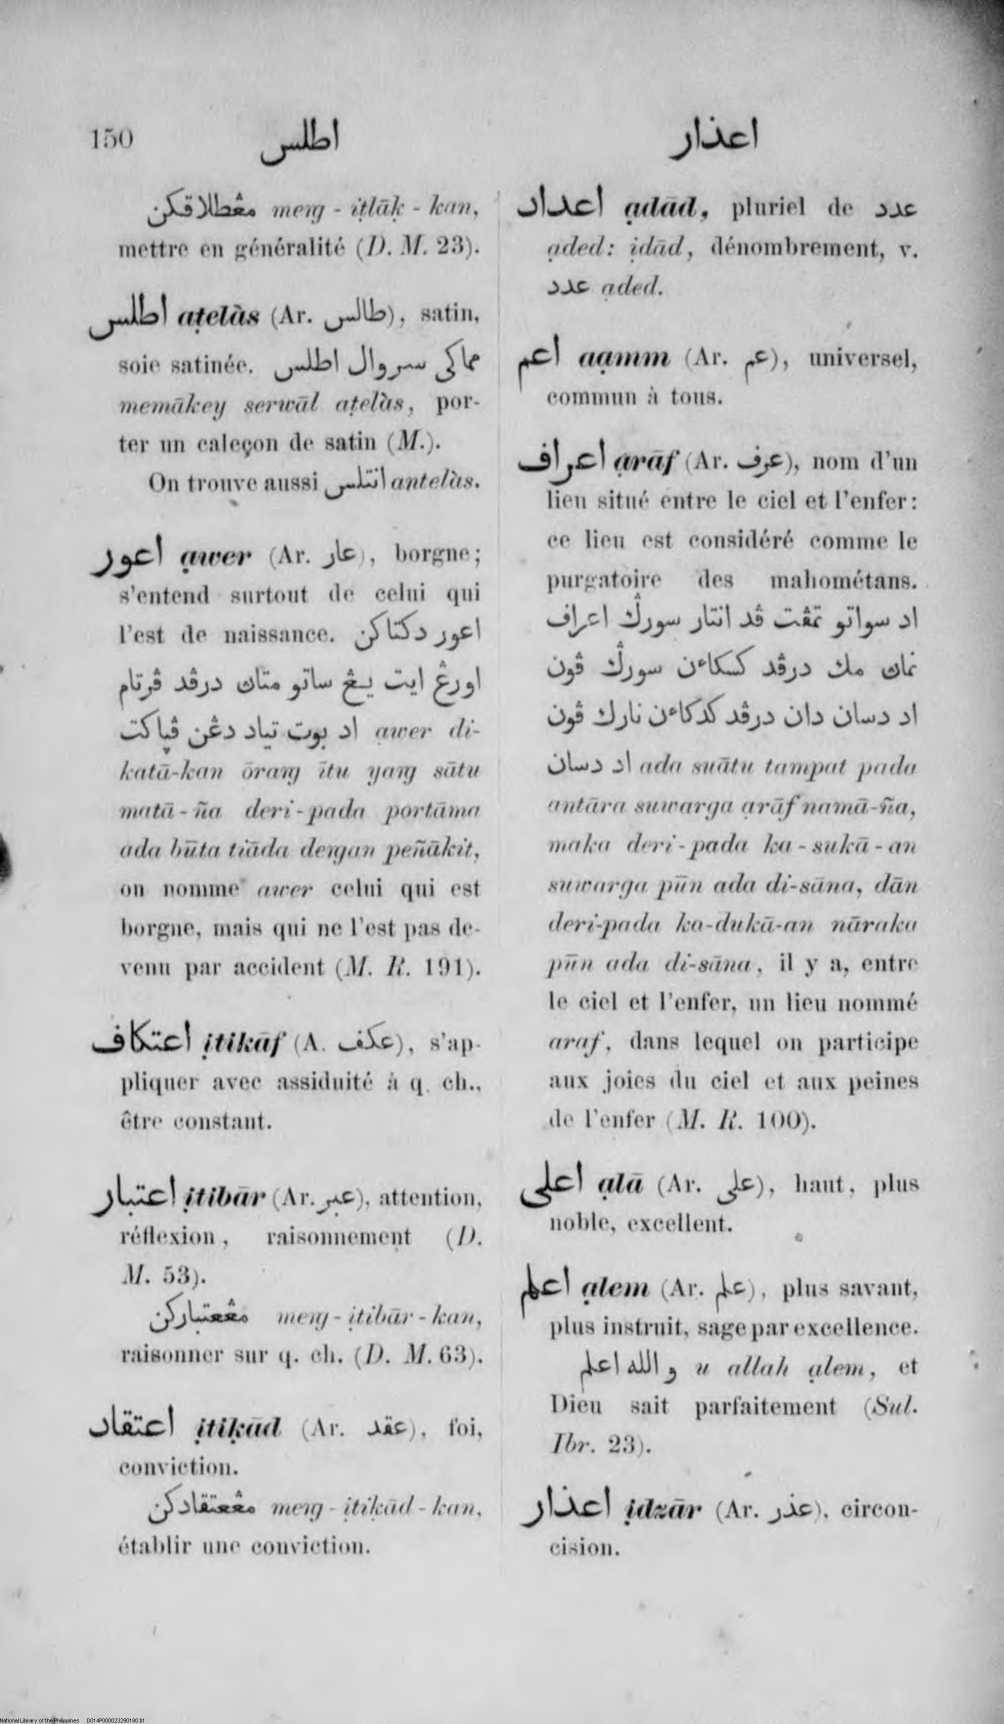 150 اطلس اعذار
مڠطلاقکن meng - iṭlāḳ - kan,
mettre en généralité (D. M. 23).
اطلس aṭelàs (Ar. طالس), satin,
soie satinée. مماکی سروال اطلس
memākey serwāl aṭelàs, por-
ter un caleçon de satin (M.).
On trouve aussi انتلس antelàs.
اعور ạwer (Ar. عار), borgne;
s'entend surtout de celui qui
l'est de naissance. اعور دکتاکن
اورڠ ایت یڠ ساتو متاڽ درڤد ڤرتام
اد بوت تیاد دڠن ڤڽاکت ạwer di-
katā-kan ōrang ītu yang sātu
matā-ña deri-pada portāma
ada būta tiāda dengan peñākit,
on nomme ạwer celui qui est
borgne, mais qui ne l'est pas de-
venu par accident (M. R. 191).
اعتکاف ịtikāf (A. عکف), s'ap-
pliquer avec assiduité à q. ch.,
être constant.
اعتبار ịtibār (Ar. عبر), attention,
réflexion, raisonnement (D.
M. 53).
مڠعتبارکن meng-ịtibār-kan,
raisonner sur q. ch. (D. M. 63).
اعتقاد ịtiḳād (Ar. عقد), foi,
conviction.
مڠعتقادکن meng-ịtiḳād-kan,
établir une conviction.
اعداد ạdād, pluriel de عدد
ạded: ịdād, dénombrement, v.
عدد ạded.
اعم aạmm (Ar. عم), universel,
commun à tous.
اعراف ạrāf (Ar. عرف), nom d'un
lieu situé entre le ciel et l'enfer:
ce lieu est considéré comme le
purgatoire des mahométans.
اد سواتو تمڤت ڤد انتار سورݢ اعراف
نماڽ مك درڤد کسکاءن سورݢ ڤون
اد دسان دان درڤد کدکاءن نارك ڤون
اد دسان ada suātu tampat pada
antāra suwarga ạrāf namā-ña,
maka deri-pada ka-sukā-an
suwarga pūn ada di-sāna, dān
deri-pada ka-dukā-an nāraka
pūn ada di-sāna, il y a, entre
le ciel et l'enfer, un lieu nommé
araf, dans lequel on participe
aux joies du ciel et aux peines
de l'enfer (M. R. 100).
اعلی ạlā (Ar. علی), haut, plus
noble, excellent.
اعلم ạlem (Ar. علم), plus savant,
plus instruit, sage par excellence.
و الله اعلم u allah ạlem, et
Dieu sait parfaitement (Sul.
Ibr. 23).
اعذار ịdzār (Ar. عذر), circon-
cision.
National Library of the Philippines